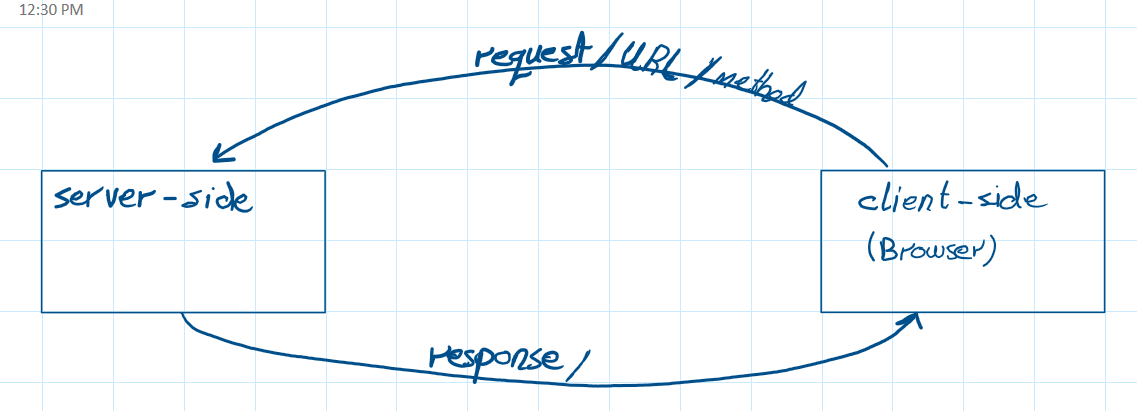 12:30 PM
request/URL/method
server-side
client-side
(Browser)
response/